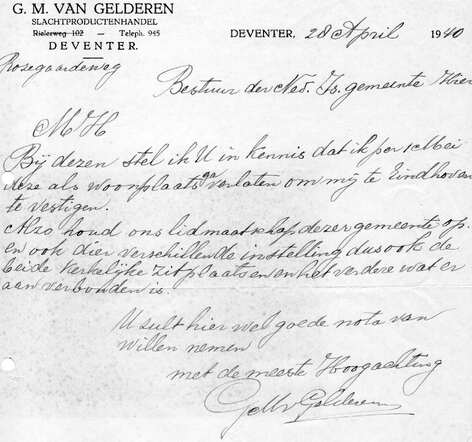 G. M. VAN GELDEREN
SLACHTPRODUCTENHANDEL
Rielerweg 102 — Teleph. 945
DEVENTER.
DEVENTER, 28 April 1940
Rosegaardeweg
Bestuur der Ned. Is. gemeente Hier
M H
Bij dezen stel ik U in kennis dat ik per 1 Mei
deze als woonplaats ga verlaten om mij te Eindhoven
te vestigen.
Alzo houd ons lidmaatschap dezer gemeente op.
en ook dier verschillende instelling dus ook de
beide Kerkelijke zitplaatsen en het verdere wat er
aan verbonden is.
U sult hier wel goede nota van
willen nemen
met de meeste Hoogachting
GMv Gelderen